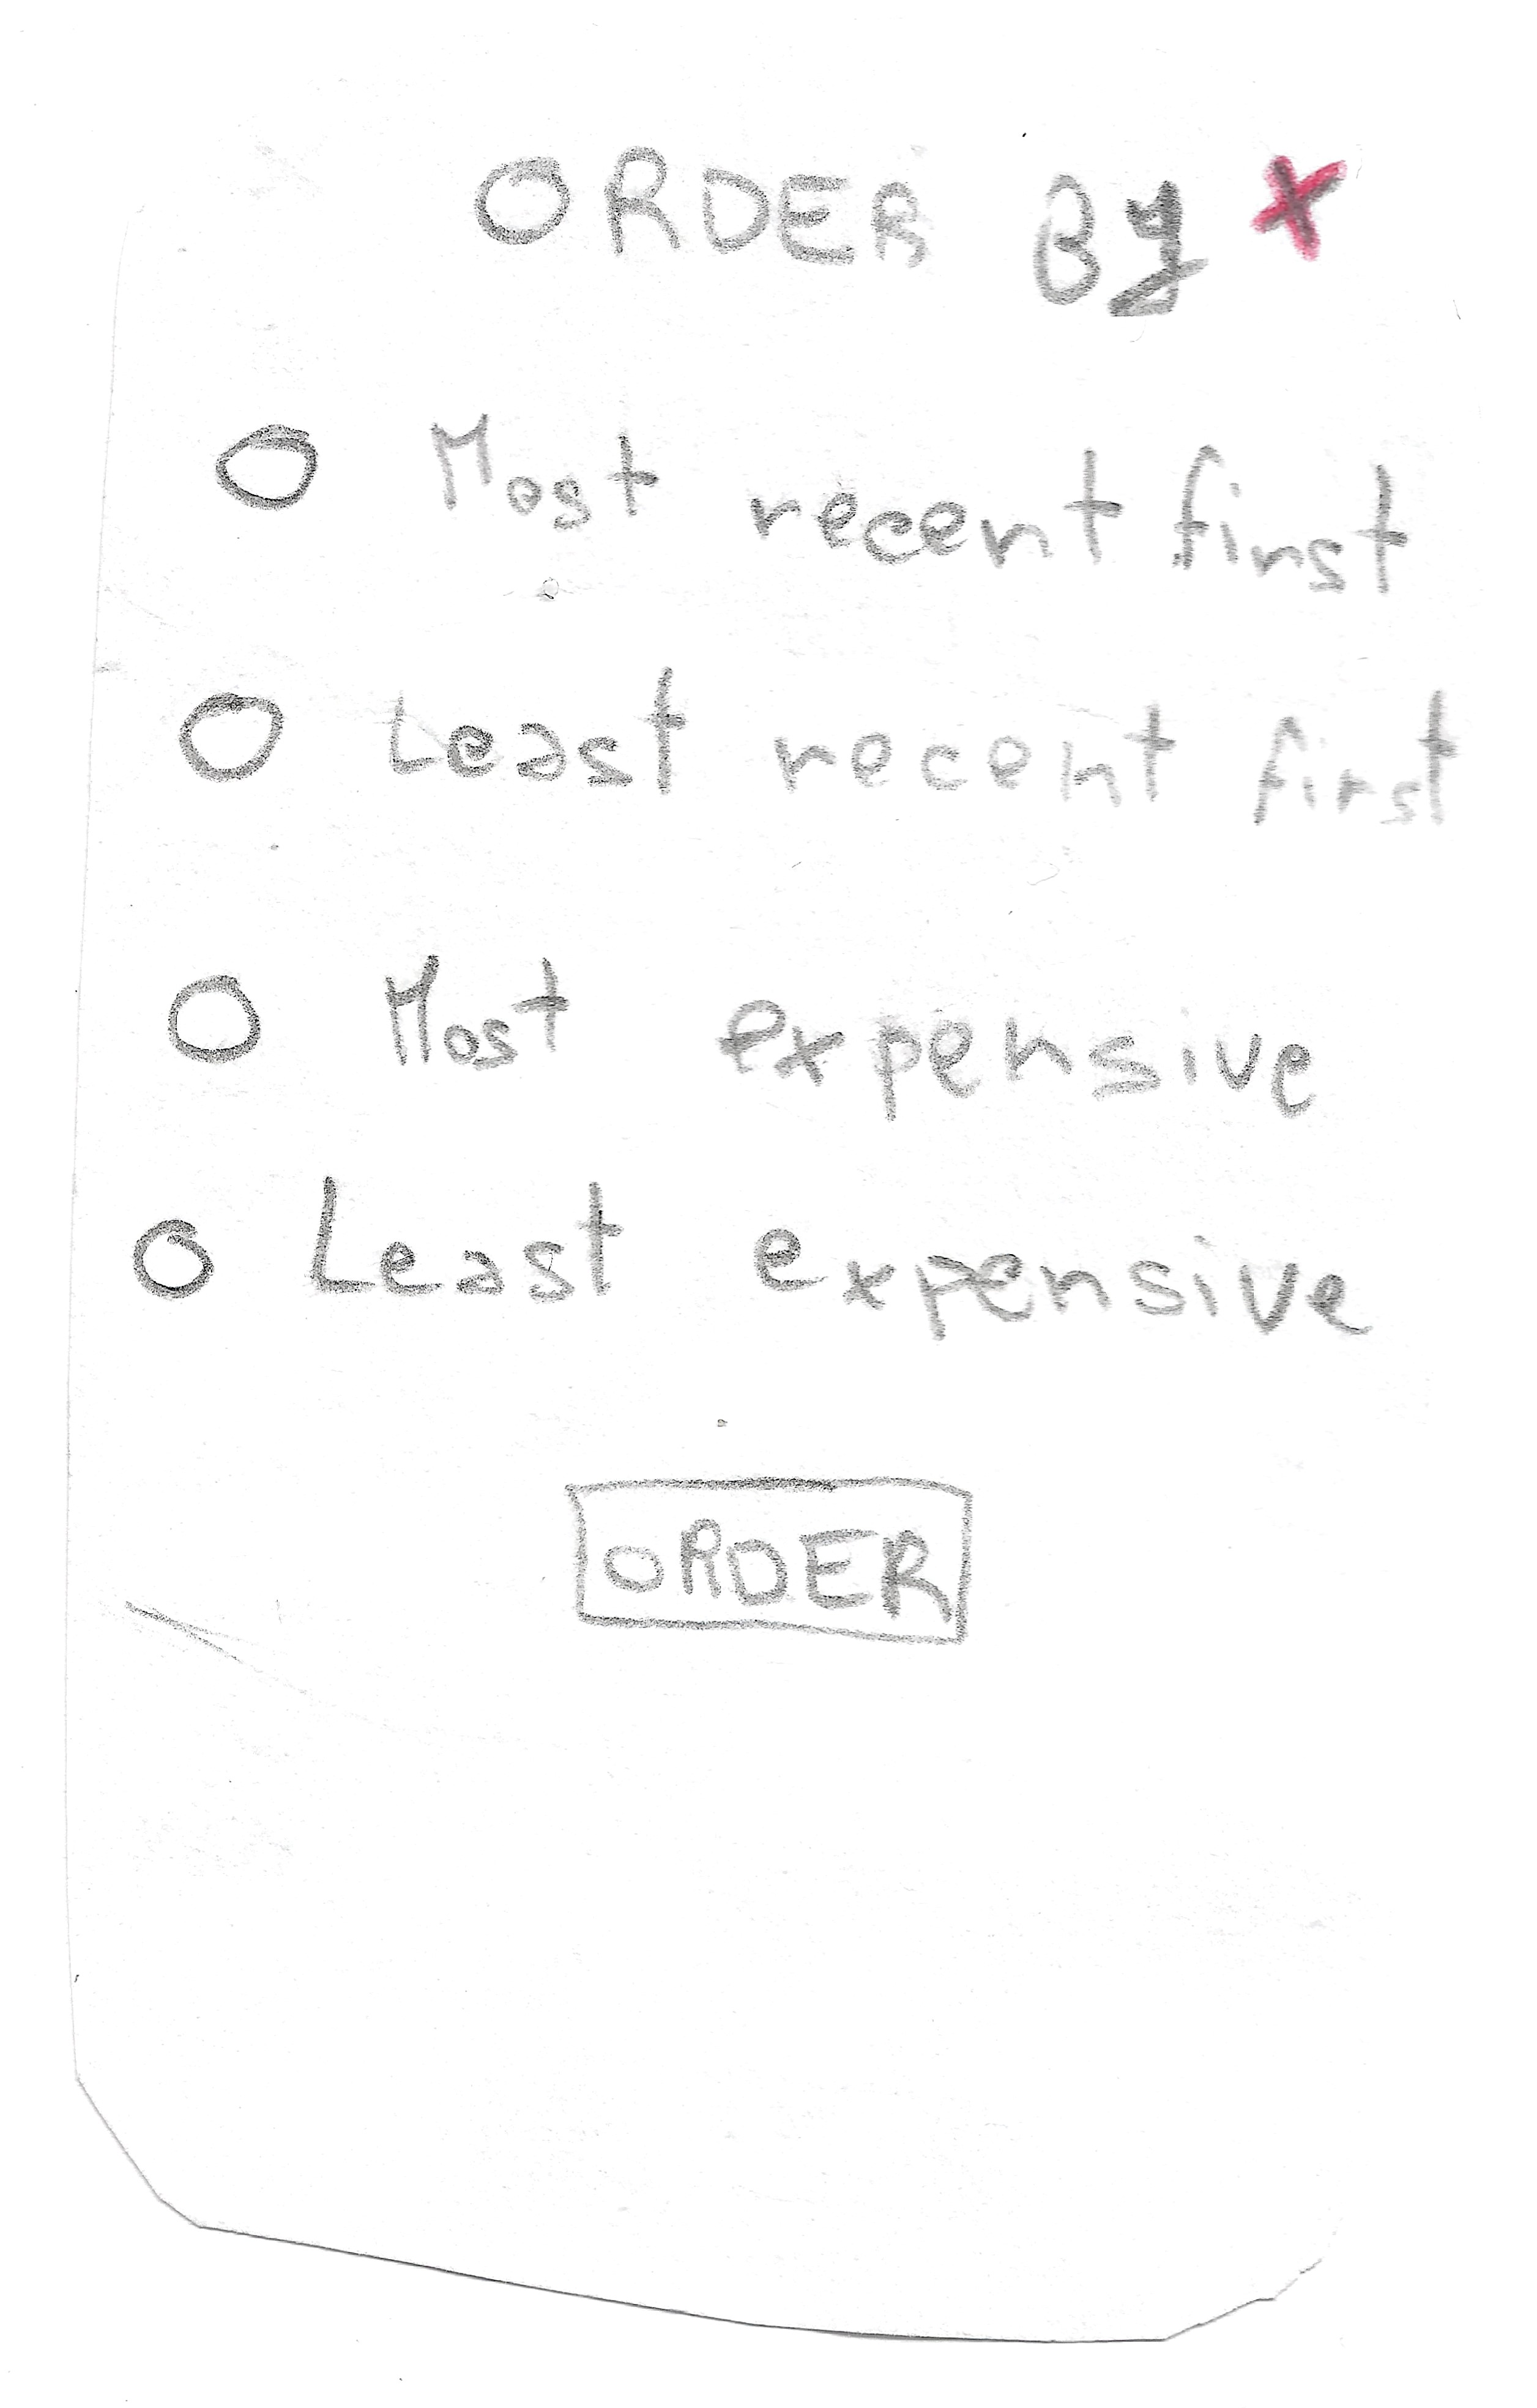 ORDER By X
O Most recent first
O Least recent first
O Most expensive
O Least expensive
ORDER